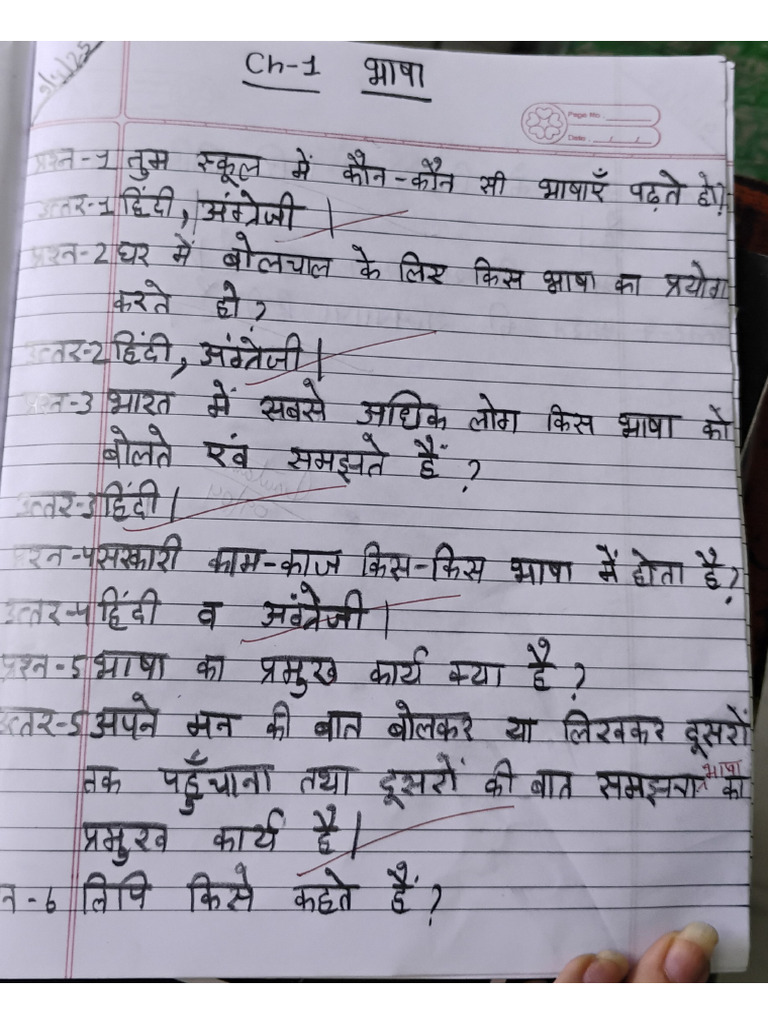 9/4/25
Ch-1 भाषा
Page No.
Date
प्रश्न-1 तुम स्कूल में कौन-कौन सी भाषाएँ पढ़ते हो?
उत्तर-1 हिंदी, अंग्रेजी |
प्रश्न-2 घर में बोलचाल के लिए किस भाषा का प्रयोग
करते हो?
उत्तर-2 हिंदी, अंग्रेजी |
प्रश्न-3 भारत में सबसे अधिक लोग किस भाषा को
बोलते एवं समझते हैं ?
उत्तर-3 हिंदी |
प्रश्न-4 सरकारी काम-काज किस-किस भाषा में होता है?
उत्तर-4 हिंदी व अंग्रेजी |
प्रश्न-5 भाषा का प्रमुख कार्य क्या है ?
उत्तर-5 अपने मन की बात बोलकर या लिखकर दूसरों
तक पहुँचाना तथा दूसरों की बात समझना भाषा का
प्रमुख कार्य है |
न-6 लिपि किसे कहते हैं ?